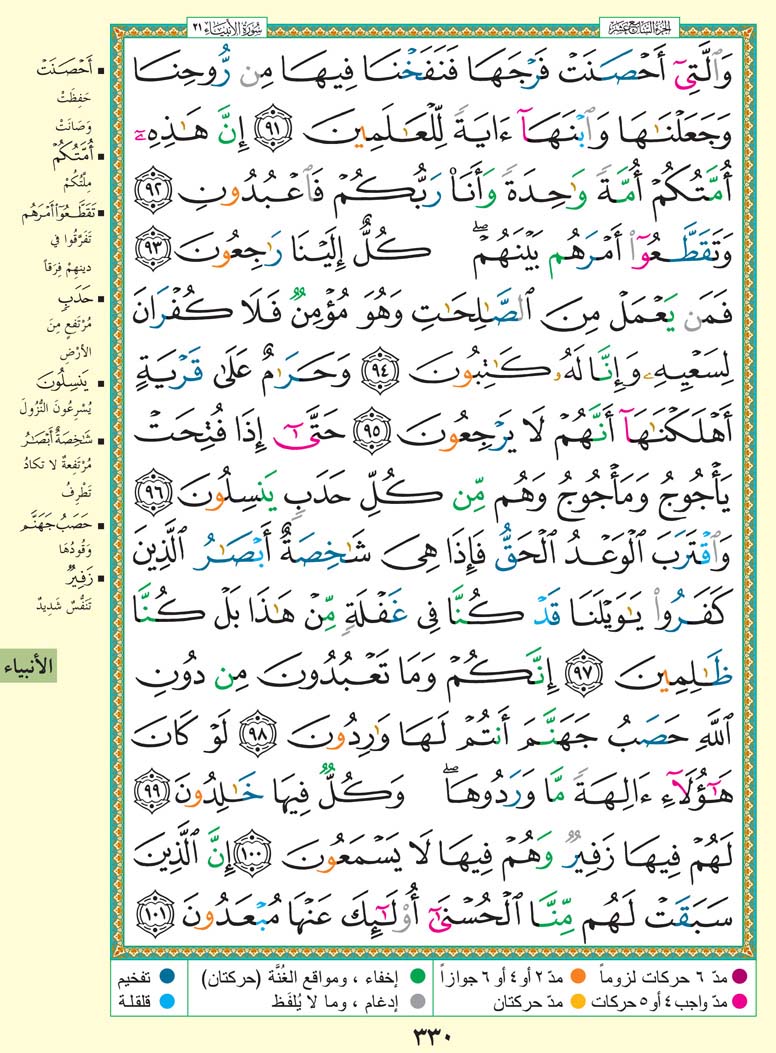 الجزء السابع عشر
سورة الأنبياء ٢١
وَٱلَّتِىٓ أَحْصَنَتْ فَرْجَهَا فَنَفَخْنَا فِيهَا مِن رُّوحِنَا
وَجَعَلْنَٰهَا وَٱبْنَهَآ ءَايَةً لِّلْعَٰلَمِينَ ٩١ إِنَّ هَٰذِهِۦٓ
أُمَّتُكُمْ أُمَّةً وَٰحِدَةً وَأَنَا۠ رَبُّكُمْ فَٱعْبُدُونِ ٩٢
وَتَقَطَّعُوٓا۟ أَمْرَهُم بَيْنَهُمْ ۖ كُلٌّ إِلَيْنَا رَٰجِعُونَ ٩٣
فَمَن يَعْمَلْ مِنَ ٱلصَّٰلِحَٰتِ وَهُوَ مُؤْمِنٌ فَلَا كُفْرَانَ
لِسَعْيِهِۦ وَإِنَّا لَهُۥ كَٰتِبُونَ ٩٤ وَحَرَٰمٌ عَلَىٰ قَرْيَةٍ
أَهْلَكْنَٰهَآ أَنَّهُمْ لَا يَرْجِعُونَ ٩٥ حَتَّىٰٓ إِذَا فُتِحَتْ
يَأْجُوجُ وَمَأْجُوجُ وَهُم مِّن كُلِّ حَدَبٍ يَنسِلُونَ ٩٦
وَٱقْتَرَبَ ٱلْوَعْدُ ٱلْحَقُّ فَإِذَا هِىَ شَٰخِصَةٌ أَبْصَٰرُ ٱلَّذِينَ
كَفَرُوا۟ يَٰوَيْلَنَا قَدْ كُنَّا فِى غَفْلَةٍ مِّنْ هَٰذَا بَلْ كُنَّا
ظَٰلِمِينَ ٩٧ إِنَّكُمْ وَمَا تَعْبُدُونَ مِن دُونِ
ٱللَّهِ حَصَبُ جَهَنَّمَ أَنتُمْ لَهَا وَٰرِدُونَ ٩٨ لَوْ كَانَ
هَٰٓؤُلَآءِ ءَالِهَةً مَّا وَرَدُوهَا ۖ وَكُلٌّ فِيهَا خَٰلِدُونَ ٩٩
لَهُمْ فِيهَا زَفِيرٌ وَهُمْ فِيهَا لَا يَسْمَعُونَ ١٠٠ إِنَّ ٱلَّذِينَ
سَبَقَتْ لَهُم مِّنَّا ٱلْحُسْنَىٰٓ أُو۟لَٰٓئِكَ عَنْهَا مُبْعَدُونَ ١٠١
أَحْصَنَتْ
حَفِظَتْ
وَصَانَتْ
أُمَّتُكُمْ
مِلَّتُكُمْ
تَقَطَّعُوٓا۟ أَمْرَهُم
تَفَرَّقُوا فِي
دِينِهِمْ فِرَقاً
حَدَبٍ
مُرْتَفِعٍ مِنَ
الأَرْضِ
يَنسِلُونَ
يُسْرِعُونَ النُّزُولَ
شَٰخِصَةٌ أَبْصَٰرُ
مُرْتَفِعَةٌ لا تَكادُ
تَطْرِفُ
حَصَبُ جَهَنَّمَ
وَقُودُهَا
زَفِيرٌ
تَنَفُّسٌ شَدِيدٌ
الأنبياء
مدّ ٦ حركات لزوماً مدّ ٢ أو ٤ أو ٦ جوازاً إخفاء ، ومواقع الغُنَّة (حركتان) تفخيم
مدّ واجب ٤ أو ٥ حركات مدّ حركتان إدغام ، وما لا يُلفَظ قلقلة
٣٣٠